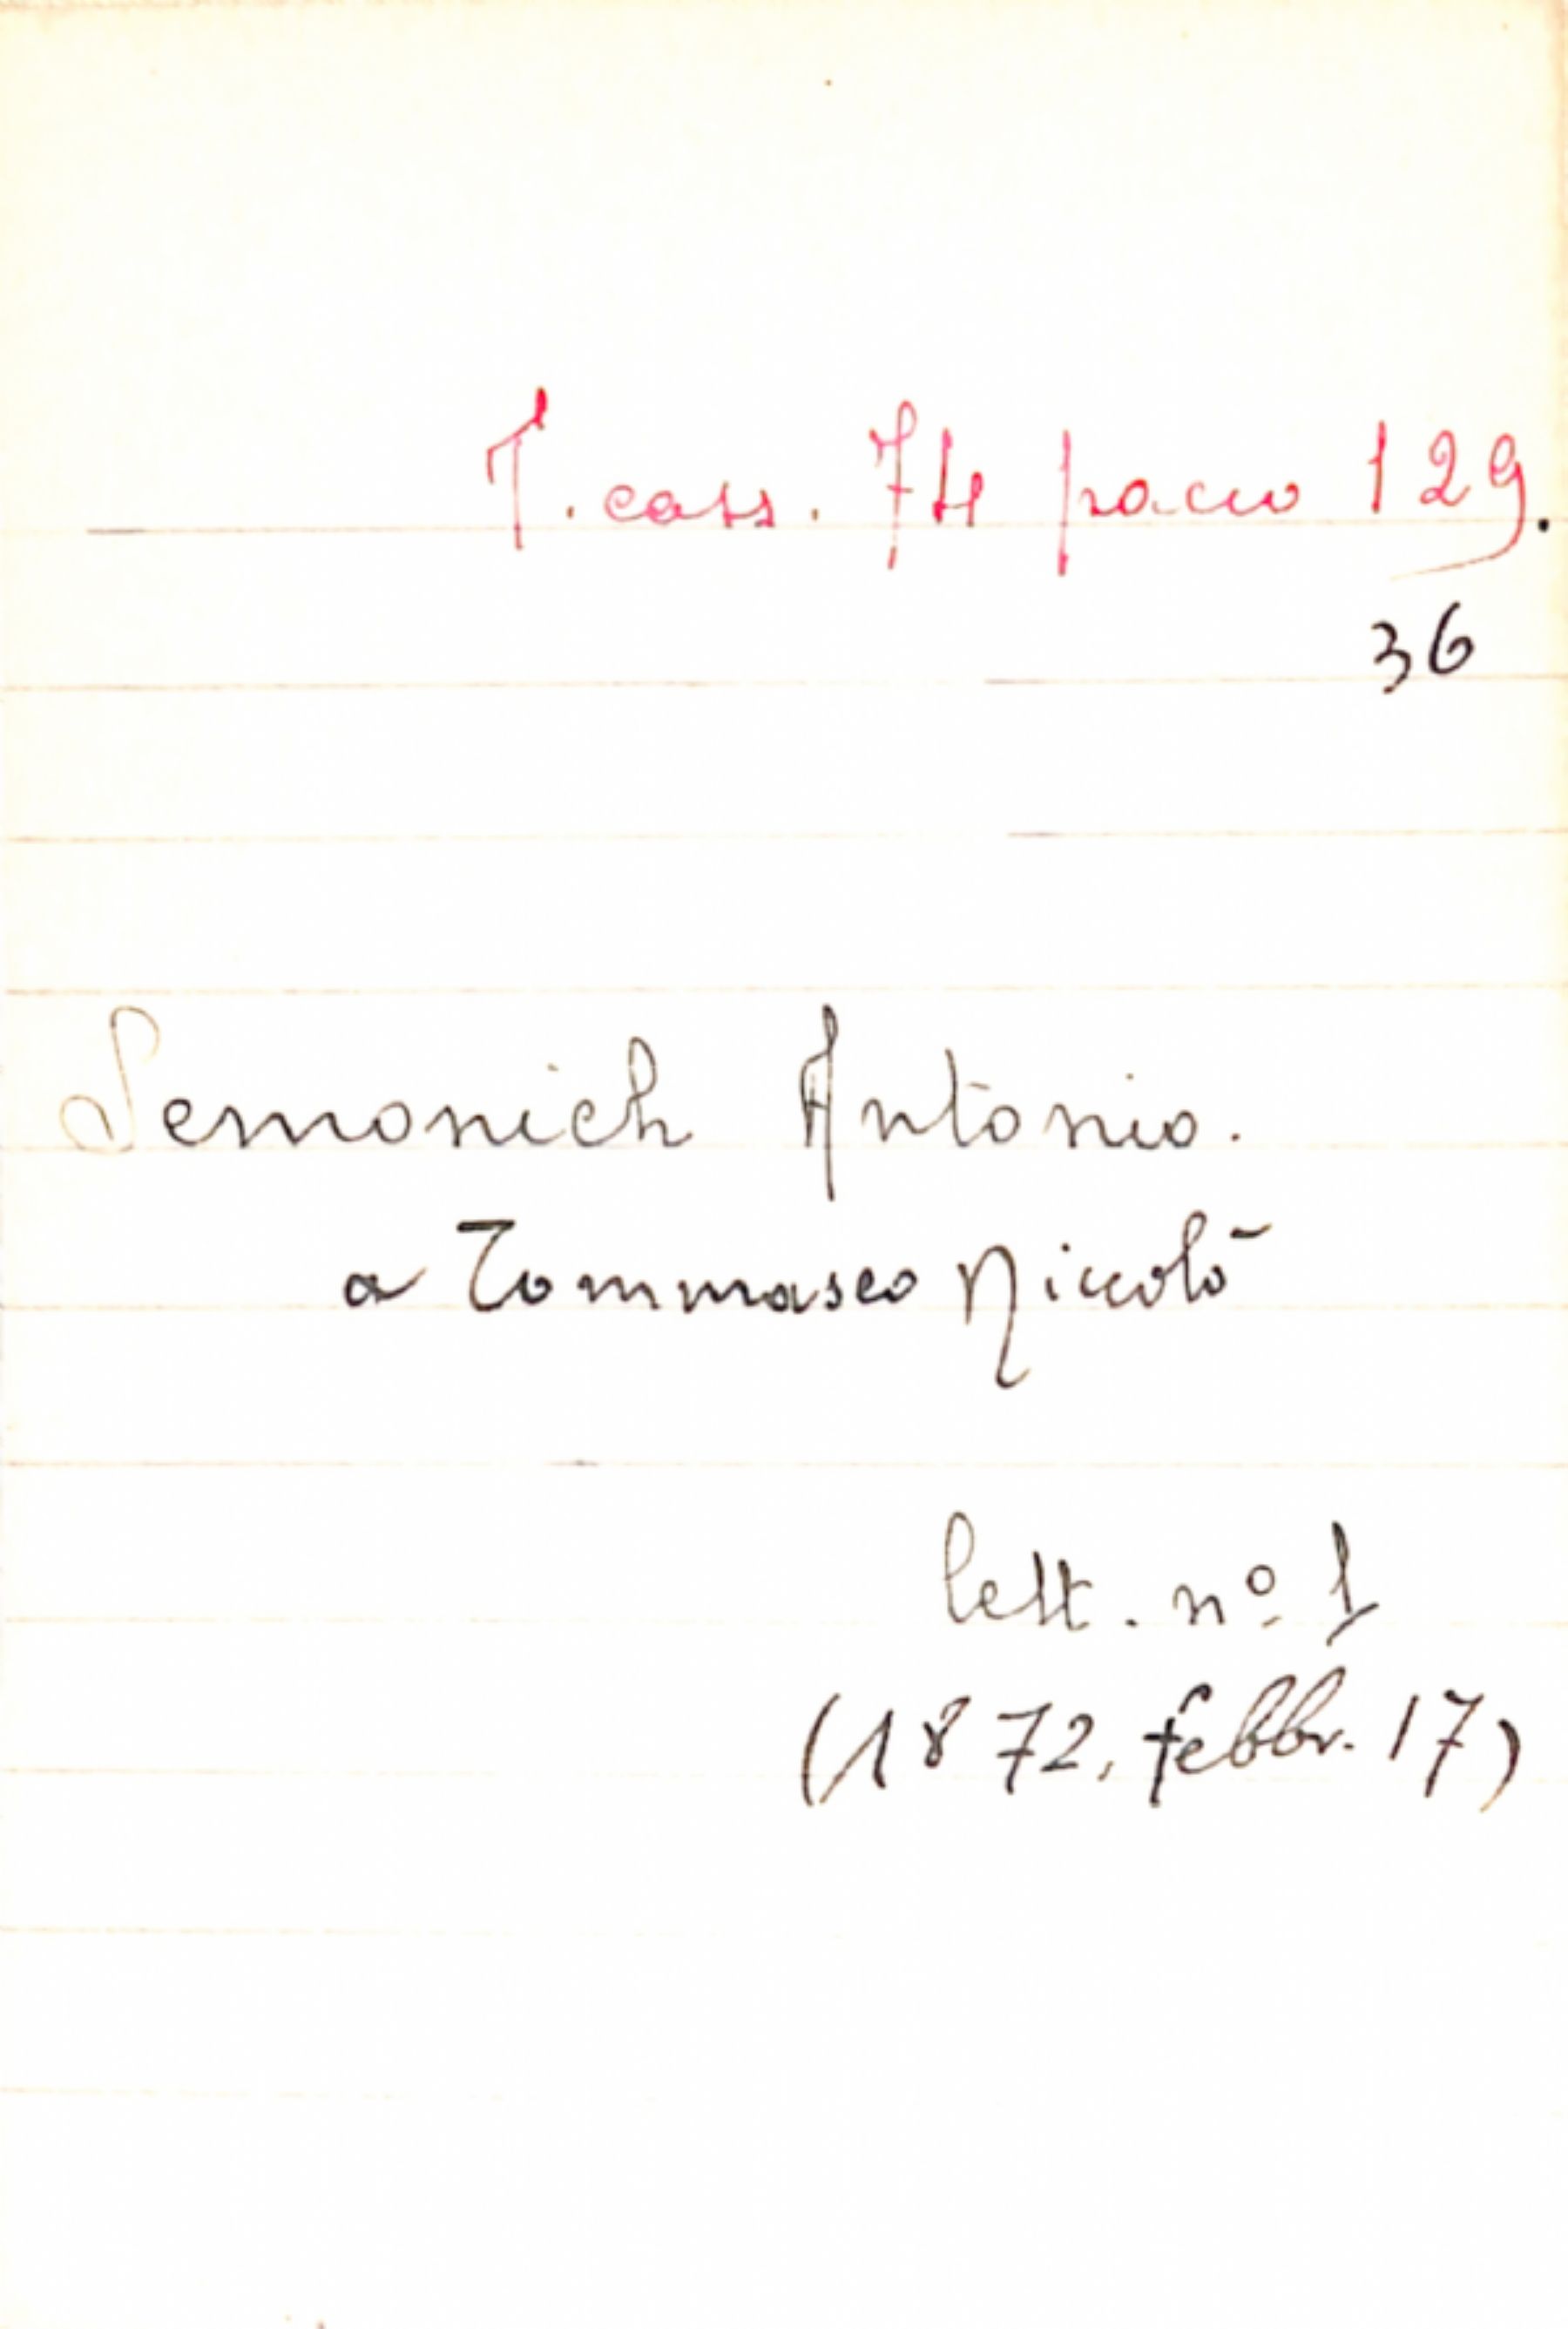 T. cass. 74 pacco 129.
36
Semonich Antonio.
a Tommaseo Niccolò
lett. nº 1
(1872, febbr. 17)